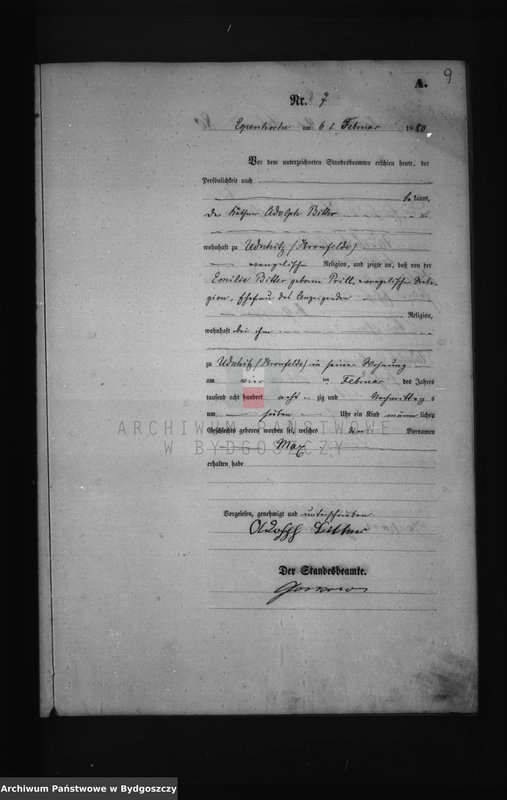 A. 9
Nr. 7
am 6 t. Februar 1880
Vor dem unterzeichneten Standesbeamten erschien heute, der
Persönlichkeit nach
be kannt,
der Käthner Adolph Bitter
wohnhaft zu
evangelischer Religion, und zeigte an, daß von der
Emilie Bitter geborene Prill, evangelischer Reli-
gion, Ehefrau des Anzeigenden
Religion,
wohnhaft bei ihm
zu in seiner Wohnung
am vier ten Februar des Jahres
tausend acht hundert acht zig und Nachmittag s
um sieben Uhr ein Kind männ lichen
Geschlechts geboren worden sei, welches den Vornamen
Max
erhalten habe
Vorgelesen, genehmigt und unterschrieben.
Adolph Bitter
Der Standesbeamte.
ARCHIWUM PAŃSTWOWE
W BYDGOSZCZY
Archiwum Państwowe w Bydgoszczy